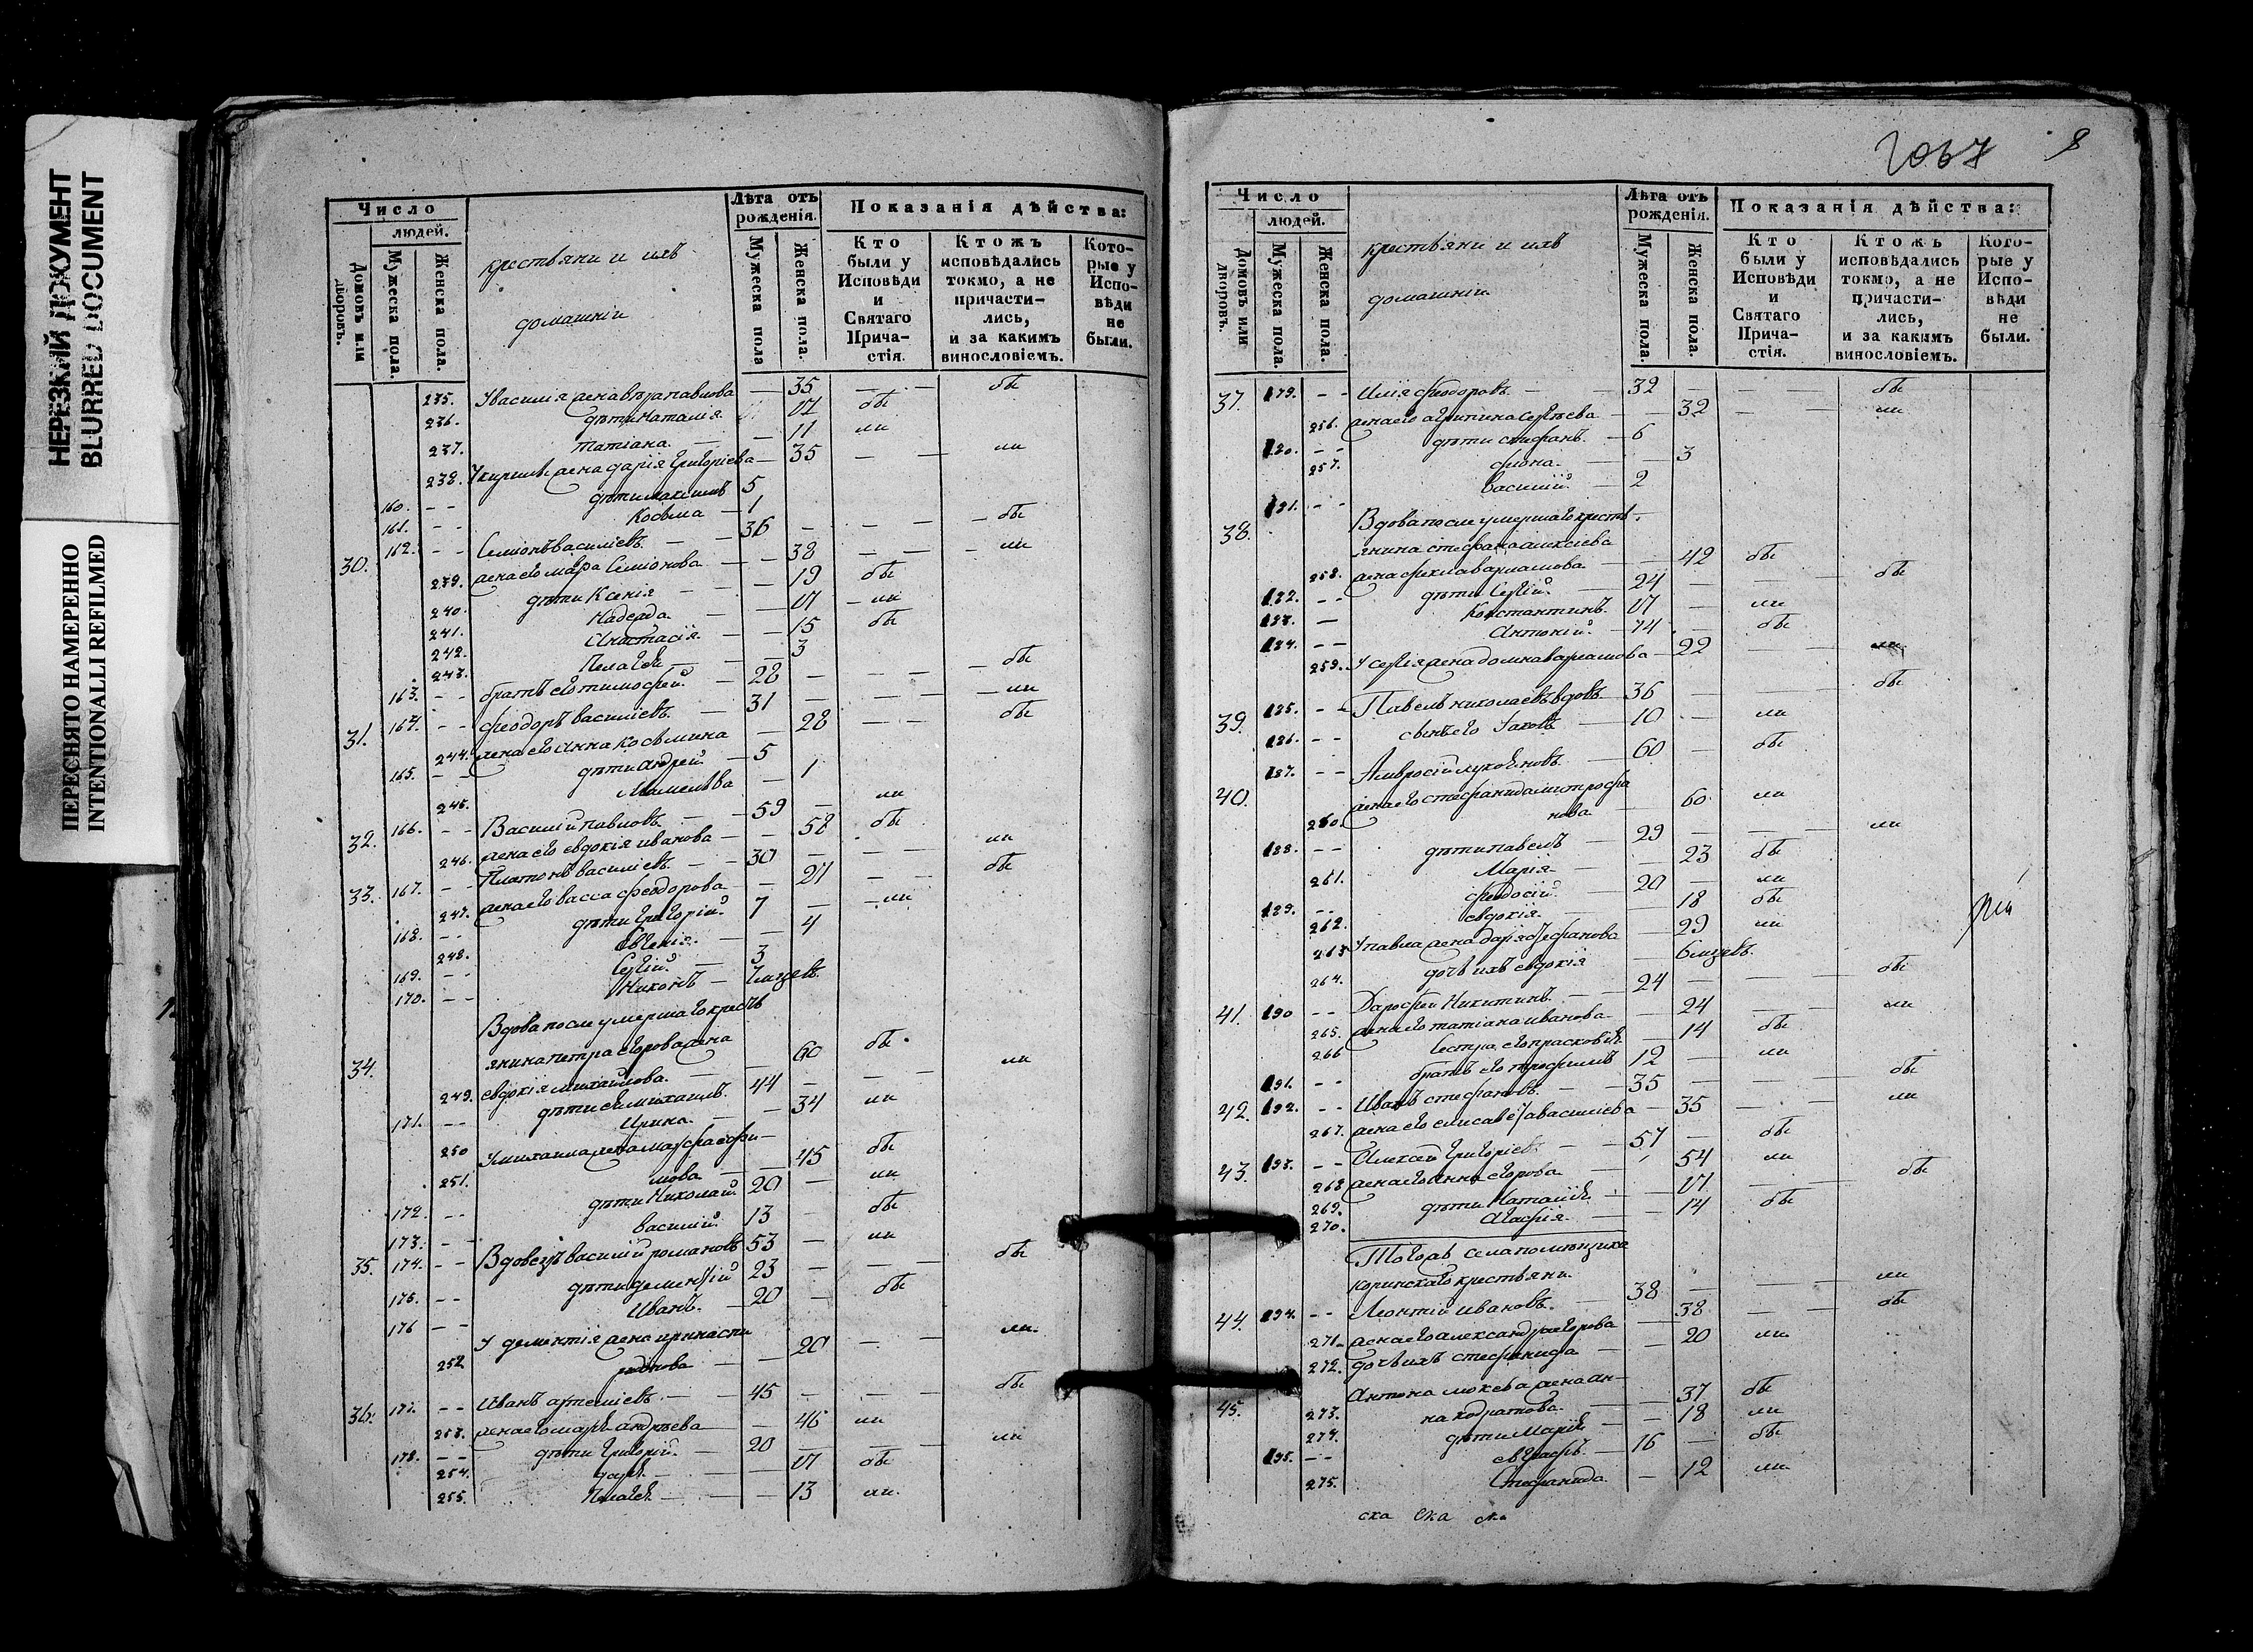 НЕРЕЗКИЙ ДОКУМЕНТ
BLURRED DOCUMENT
ПЕРЕСНЯТО НАМЕРЕННО
INTENTIONALLI REFILMED
Число
людей.
Домовъ или дворовъ.
Мужеска пола.
Женска пола.
крестьяни и ихъ
домашніи
Лѣта отъ рожденія.
Мужеска пола
Женска пола.
Показанія дѣйства:
Кто были у Исповѣди и Святаго Прича-стія.
Ктожъ исповѣдались токмо, а не причасти-лись, и за какимъ винословіемъ.
Кото-рые у Испо-вѣди не были.
235. У василія жена вѣра павлова — 35 — — бы
236. дѣти наталія 17 бы
237. татіана — 11 ли
238. У жена дарія григоріева — 35 — — ли
160. — дѣти максимъ 5
161. — Косьма — 1
30. 162. — Семіонъ василіевъ — 36 — — — бы
239. жена его марѳа Семіонова — 38 — — ли
240. дѣти Ксенія — 19 бы
241. Надежда — 17 — ли
242. Анастасія — 15 бы
243. Пелагея — 3
163. — братъ его тимоѳей — 28 — — — бы
31. 164. — ѳеодоръ василіевъ — 31 — — — ли
244. жена его анна косьмина — 28 — — бы
165. — дѣти андрей — 5
245. — 1
32. 166. — Василій павловъ — 59 — ли
246. жена его евдокія иванова — 58 бы
33. 167. — Платонъ василіевъ — 30 — — — ли
247. жена его васса ѳеодорова — 27 — — бы
168. — дѣти григорій 7 — ли
248. Евгенія — 4
169. — Сергій — 3
170. — Никонъ — мцевъ
Вдова после умершаго кресть
34. янина петра егорова жена
249. евдокія михайлова — 60 бы
171. — дѣти ея михаилъ 44 — — — ли
250 Ирина — 34 ли
У михаила жена марѳа
251. мова — 45 бы
172. — дѣти Николай 20 — ли
173. — василій 13 — бы
35. 174. — Вдовецъ василій романовъ 53 — ли
175. — дѣти дементій 23 — — — бы
176 — Иванъ — 20 — бы
У дементія жена ирина спи
252 ридонова — 20 — — ли
36. 177. — Иванъ артеміевъ — 45 — — — бы
253. жена его марья андреева — 46 ли
178. — дѣти григорій — 20 — — — ли
254. дарья — 17 бы
255. Пелагея — 13 ли
2067
8
Число
людей.
Домовъ или дворовъ.
Мужеска пола.
Женска пола.
крестьяни и ихъ
домашніи
Лѣта отъ рожденія.
Мужеска пола.
Женска пола.
Показанія дѣйства:
Кто были у Исповѣди и Святаго Прича-стія.
Ктожъ исповѣдались токмо, а не причасти-лись, и за какимъ винословіемъ.
Кото-рые у Испо-вѣди не были.
37. 179. — Илія ѳеодоровъ — 32 — — — бы
256. жена его агрипина сергѣева — 32 — — ли
180. — дѣти стефанъ — 6
257. — 3
181. — василій — 2
38. Вдова после умершаго кресть
янина стефана алексіева
258. жена ѳекла варламова — 42 бы
182. — дѣти Сергій — 24 — — — бы
183. — Константинъ 17 — ли
184. — Антоній — 14 бы
259. У сергія жена домна варламова — 22 — — ли
39. 185. — Павелъ николаевъ вдовъ — 36 — — — бы
186. — сынъ его Іаковъ — 10 — ли
40. 187. — Амвросій — 60 — бы
жена его стефанида митрофа
260. нова — 60 ли
188. — дѣти павелъ — 29 — — — ли
261. Марія — 23 бы
189. — ѳеодосій — 20 — ли
262. евдокія — 18 бы
263 У павла жена дарія стефанова — 29 ли
264. дочь ихъ евдокія — 6 мцевъ.
41. 190 — Дорофей Никитинъ — 24 — — — бы
265. жена его татіана иванова — 24 — — ли
266 Сестра его прасковья — 14 бы
191. — братъ его трофимъ 12 — ли
42. 192. — Иванъ стефановъ — 35 — — — бы
267. жена его елисавета василіева — 35 — — ли
43. 193. — Алексей Григоріевъ — 57 — бы
268 жена его анна егорова — 54 ли
269. дѣти Наталія — 17 — — бы
270. Агафія — 14 бы
Тогожъ села помѣщика
коринскаго крестьяни.
44. 194. — Леонтій ивановъ — 38 — — — ли
271. жена его александра егорова — 38 — — бы
272. дочь ихъ стефанида — 20 ли
45. Антона мокеева жена ан-
273. на кодратова — 37 бы
274. дѣти Марія — 18 ли
195. — евграфъ — 16 — бы
275. Стефанида — 12 ли
ска ска ска